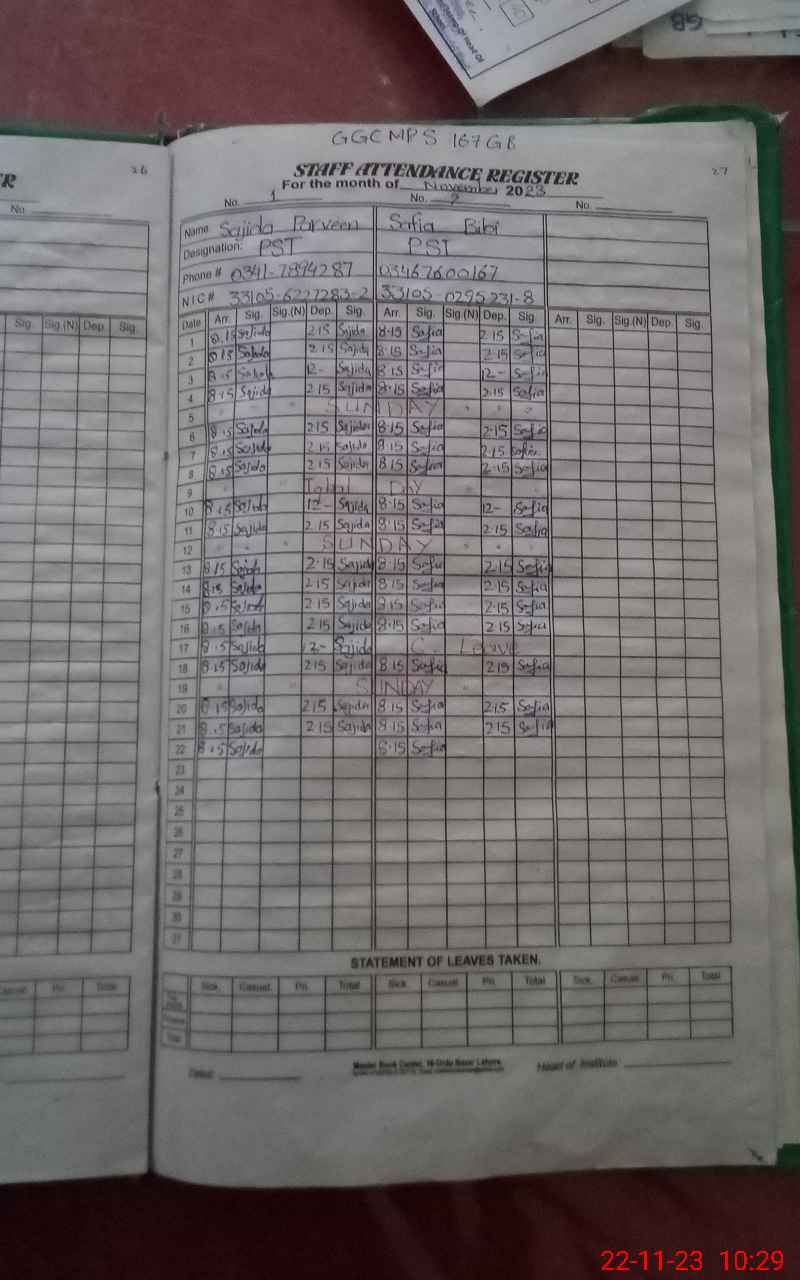 GB
GGCMPS 167GB
26
27
STAFF ATTENDANCE REGISTER
For the month of November 2023
No. 1 No. 2 No.
No.
Name: Sajida Parveen Safia Bibi
Designation: PST PST
Phone # 0341-7894287 03467600167
NIC# 33105-6227283-2 33105-0295231-8
Date Arr. Sig. Sig.(N) Dep. Sig. Arr. Sig. Sig.(N) Dep. Sig. Arr. Sig. Sig.(N) Dep. Sig.
Sig. Sig.(N) Dep. Sig.
1 8.15 Sajida 2.15 Sajida 8.15 Safia 2.15 Safia
2 8.15 Sajida 2.15 Sajida 8.15 Safia 2.15 Safia
3 8.15 Sajida 12- Sajida 8.15 Safia 12- Safia
4 8.15 Sajida 2.15 Sajida 8.15 Safia 2.15 Safia
5 SUNDAY
6 8.15 Sajida 2.15 Sajida 8.15 Safia 2.15 Safia
7 8.15 Sajida 2.15 Sajida 8.15 Safia 2.15 Safia
8 8.15 Sajida 2.15 Sajida 8.15 Safia 2.15 Safia
9 Iqbal Day
10 8.15 Sajida 12- Sajida 8.15 Safia 12- Safia
11 8.15 Sajida 2.15 Sajida 8.15 Safia 2.15 Safia
12 SUNDAY
13 8.15 Sajida 2.15 Sajida 8.15 Safia 2.15 Safia
14 8.15 Sajida 2.15 Sajida 8.15 Safia 2.15 Safia
15 8.15 Sajida 2.15 Sajida 8.15 Safia 2.15 Safia
16 8.15 Sajida 2.15 Sajida 8.15 Safia 2.15 Safia
17 8.15 Sajida 12- Sajida C. Leave
18 8.15 Sajida 2.15 Sajida 8.15 Safia 2.15 Safia
19 SUNDAY
20 8.15 Sajida 2.15 Sajida 8.15 Safia 2.15 Safia
21 8.15 Sajida 2.15 Sajida 8.15 Safia 2.15 Safia
22 8.15 Sajida 8.15 Safia
23
24
25
26
27
28
29
30
31
STATEMENT OF LEAVES TAKEN.
Sick. Casual. Pri. Total Sick. Casual. Pri. Total Sick. Casual. Pri. Total
Casual. Pri. Total
Total
Master Book Center, 16-Urdu Bazar Lahore.
Dated: Head of Institute
22-11-23 10:29